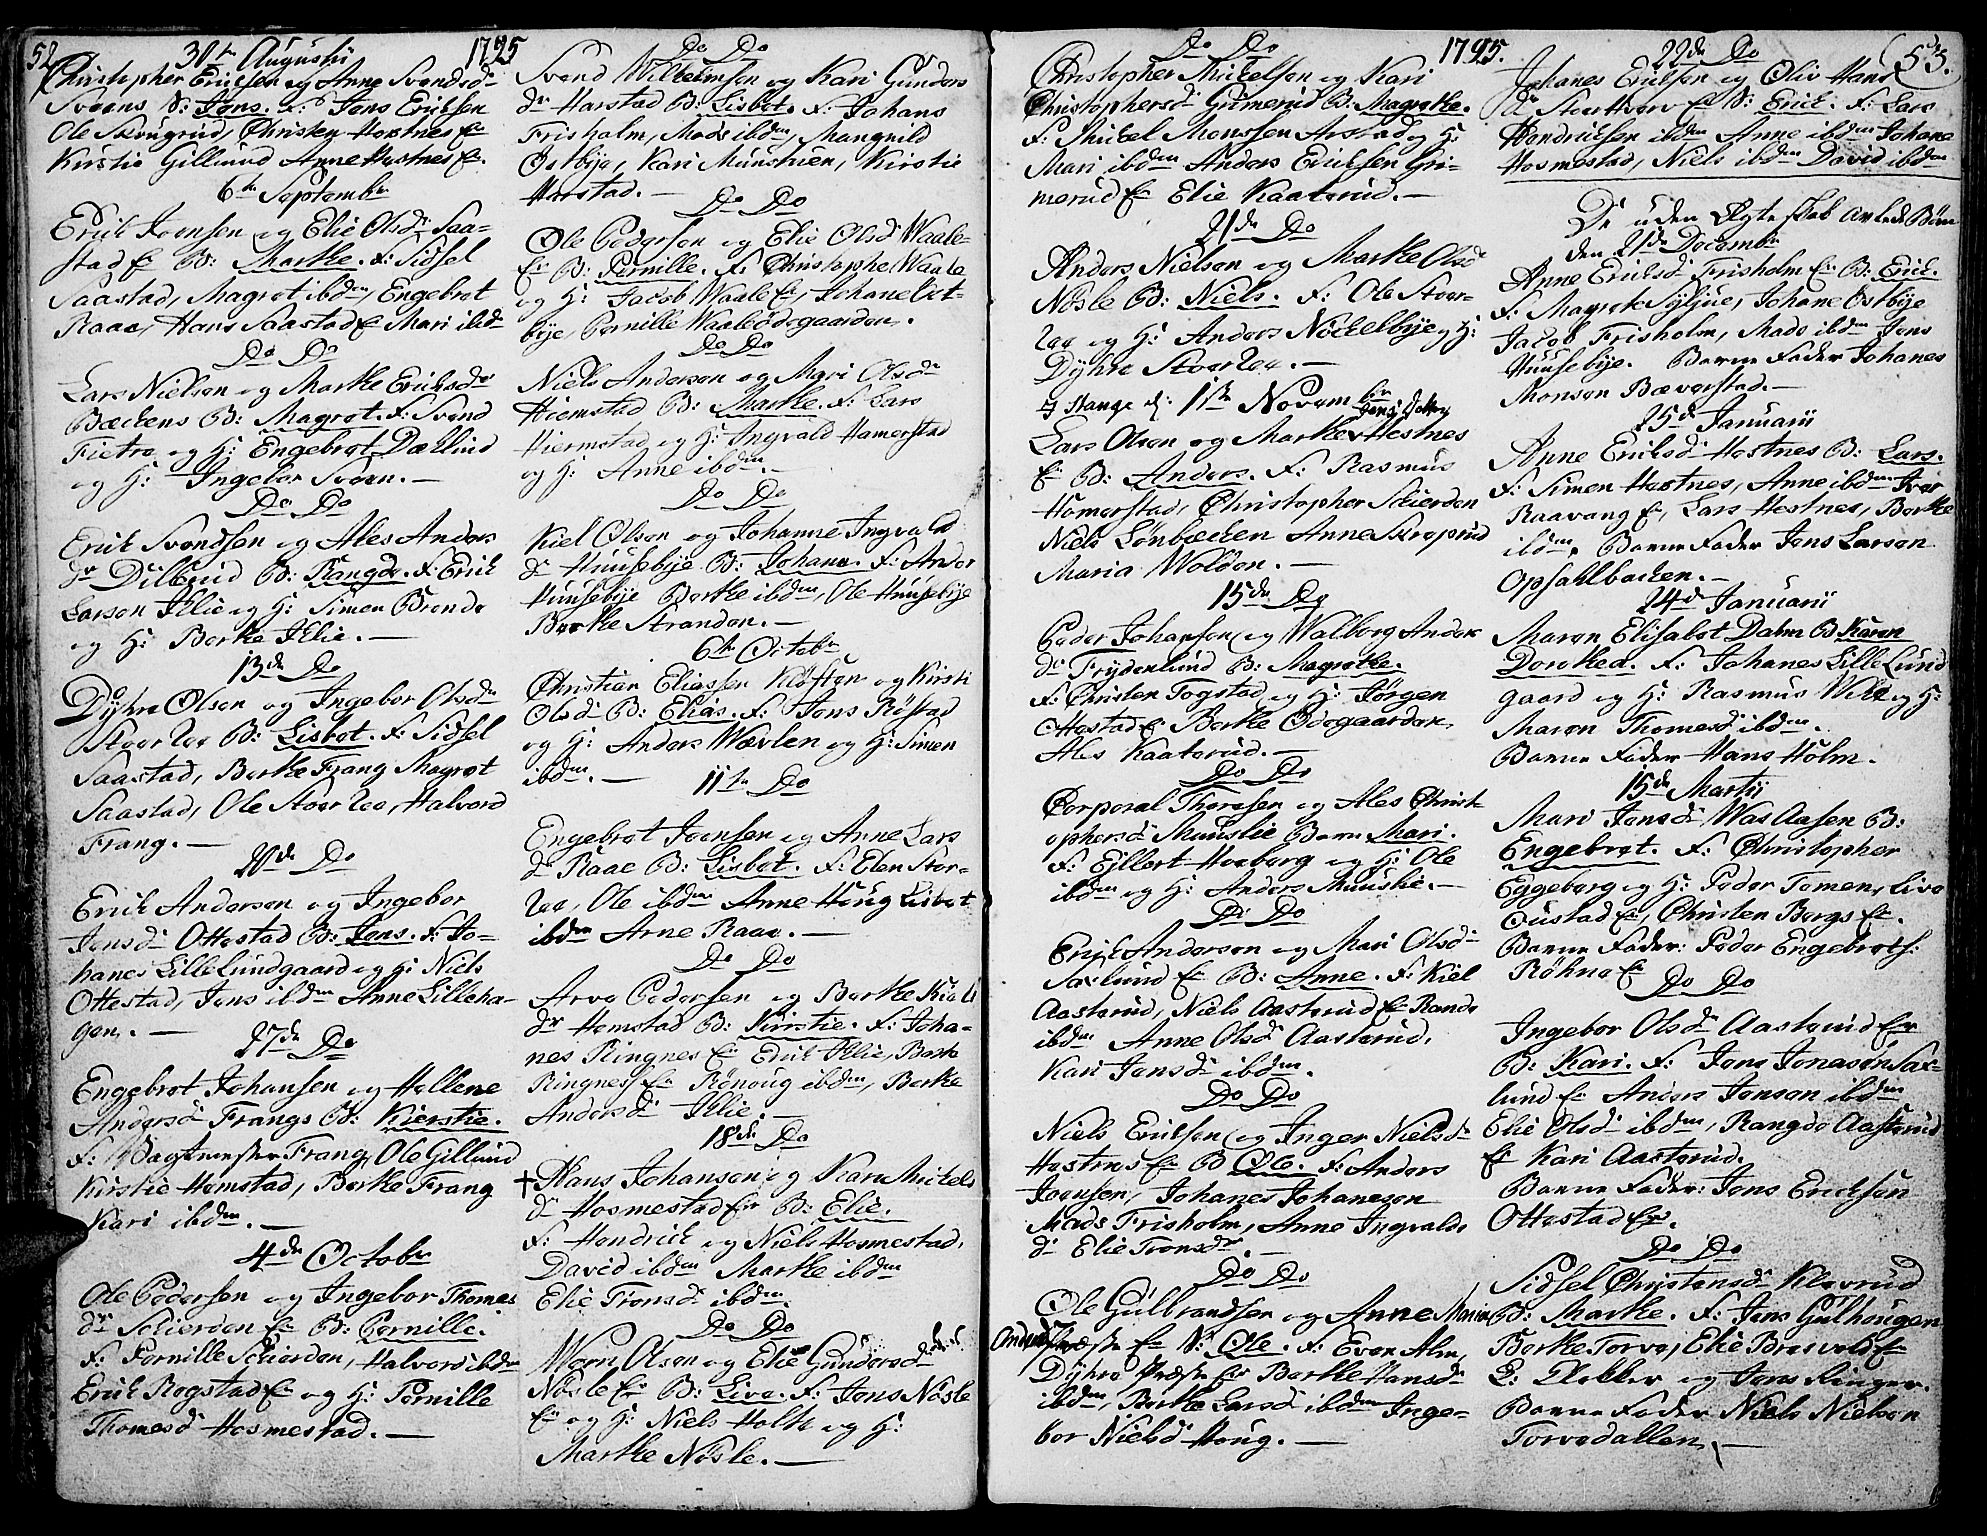 52
30te Augustii 1795
Christopher Ericksen og Anne Svendsdr
Svæns B: Jens. F: Jens Ericksen
Ole Skrugrud, Christen Hostnes Er
Kirstie Gillund Anne Hostnes Er.
6te Septembr
Erick Joensen og Elie Olsdr Saa-
stad Er B: Marthe. F: Sidsel
Saastad, Magret ibdm, Engebret
Raaa, Hans Saastad Er Mari ibdm
Do Do
Lars Nielsen og Marthe Ericksdr
Bæckens B: Magret. F: Svend
Fietre og H: Engebret Dællund
og H: Ingebor Svæn.—
Do Do
Erick Svendsen og Ales Anders
dr Dillerud B: Rangdi. F: Erick
Larsen Ihlie og H: Simen Brende
og H: Berthe Ihlie.—
13de Do
Dyhre Olsen og Ingebor Olsdr
Stoer Ree B: Lisbet. F: Sidsel
Saastad, Berthe Frang Magret
Saastad, Ole Stoer Ree, Halvord
Frang.—
20de Do
Erick Andersen og Ingebor
Jensdr Ottestad B: Jens. F: Jo-
hanes Lille Lundgaard og H: Niels
Ottestad, Jens ibdm Anne Lilleha-
gen.—
27de Do
Engebret Johansen og Hellene
Andersdr Frangs B: Kierstie.
F: Vagtmester Frang, Ole Gillund
Kirstie Hemstad, Berthe Frang
Kari ibdm.—
4de Octobr
Ole Pedersen og Ingebor Thomas
dr Schierden Er B: Pernille.
F: Pernille Schierden, Halvord ibdm
Erick Rogstad Er og H: Pernille
Thomesdr Hosmestad.—
Do Do
Svend Wilhelmsen og Kari Gunders
dr Harstad B: Lisbet. F: Johans
Frisholm, Mads ibdm, Mangnild
Ostbye, Kari Munstuen, Kirstie
Harstad.—
Do Do
Ole Pedersen og Elie Olsdr Waale-
Er B: Pernille. F: Christophe Waale
og H: Jacob Waale Er, Johane Ost-
bye, Pernille Waaleødegaarden.
Do Do
Niels Andersen og Mari Olsdr
Hiemstad B: Marthe. F: Lars
Hiermstad og H: Ingvald Hamerstad
og H: Anne ibdm.—
Do Do
Kiel Olsen og Johanne Ingvald
dr Huusebye B: Johane. F: Ander
Huusebye Berthe ibdm, Ole Huusebye
Berthe Stranden.—
6te Octobr
Christian Eliassen Kløften og Kirsti
Olsdr B: Elias. F: Jens Røstad
og H: Anders Wævlen og H: Simen
ibdm.—
11te Do
Engebret Joensen og Anne Lars
dr Raae B: Lisbet. F: Elen Stor-
Ree, Ole ibdm Anne Houg Lisbet
ibdm Arne Raae.—
Do Do
Arve Pedersen og Berthe Kiels
dr Hemstad B: Kirstie. F: Joha-
nes Ringnes Er Erick Ihlie, Berthe
Ringnes Er Rønnoug ibdm, Berthe
Andersdr Ihlie.—
18de Do
+ Hans Johansen og Karn Mickels
dr Hosmestad Er B: Elie.
F: Hendrick og Niels Hosmestad,
David ibdm Marthe ibdm
Elie Tronsdr ibdm.
Do Do
Wærn Olsen og Elie Gundersdr
Nøsle Er B: Live. F: Jens Nøsle
Er og H: Niels Holte og H:
Marthe Nøsle.—
Do Do 1795.
Christopher Mickelsen og Kari
Christophersdr Grimerud B: Magrethe.
F: Mickel Monssen Arstad og H:
Mari ibdm Anders Ericksen Gri-
merud Er Elie Kaaterud.—
21de Do
Anders Nielsen og Marthe Olsdr
Nøsle B: Niels. F: Ole Stoer-
Ree og H: Anders Nøckelbye og H:
Dyhre Stoer Ree.—
I Stange K: 1ste Novembr
Jens Datter
Lars Olsen og Marthe Hestnes
Er B: Anders. F: Rasmus
Homerstad, Christopher Skierden
Niels Lønbæcken Anne Skraprud
Maria Wolden.—
15de Do
Peder Johansen og Walborg Anders
dr Frydenlund B: Magrethe.
F: Christen Togstad og H: Jørgen
Ottestad Er Berthe Ødegaarden
Ales Kaaterud.—
Do Do
Corporal Thoresen og Ales Christ-
ophersdr Muuslie Barn Mari.
F: Ejllert Hoeberg og H: Ole
ibdm og H: Anders Muuslie.—
Do Do
Erick Andersen og Mari Olsdr
Saxlund Er B: Anne. F: Kiel
Aasterud, Niels Aasterud Er Rande
ibdm Anne Olsdr Aasterud,
Kari Jensdr ibdm.
Do Do
Niels Ericksen og Inger Nielsdr
Hostnes Er B Ole. F: Anders
Joensen, Johanes Johanesen
Mads Frisholm, Anne Ingvalds
dr Elie Tronsdr.—
Do Do
Ole Gulbrandsen og Anne Maria
Andersdr Præste Er B: Ole. F: Even Alm,
Dyhre Præste Er Berthe Hansdr
ibdm, Berthe Larsdr ibdm Inge-
bor Nielsdr Houg.—
22de Do 53.
Johanes Ericksen og Oliv Hans
dr Stoer Hverv Er B: Erick. F: Lars
Hendricksen ibdm Anne ibdm Johane
Hosmestad, Niels ibdm David ibdm
De uden Ægteskab avlede Børn
den 21de Decembr
Anne Ericksdr Frisholm Er B: Erick.
F: Magrete Syljue, Johane Ostbye
Jacob Frisholm, Mads ibdm Jens
Huusebye. Barne Fader Johanes
Monsen Bæverstad.—
25de Januarii
Anne Ericksdr Hostnes B: Lars.
F: Simen Hostnes, Anne ibdm Iver
Raavang Er, Lars Hestnes, Berthe
ibdm. Barne Fader Jens Larsen
Opsahlbacken.—
24de Januarii
Maren Elisabet Dalm B Karen
Dorothea. F: Johanes Lille Lund
gaard og H: Rasmus Wik og H:
Maren Thomesdr ibdm.
Barne Fader Hans Holm.
15de Martij
Mari Jensdr Was Aasen B:
Engebret. F: Christopher
Eggeberg og H: Peder Tomen, Live
Oustad Er, Christen Bergs Er.
Barne Fader: Peder Engebrets:
Røhne Er
Do Do
Ingebor Olsdr Aasterud Er
B: Kari. F: Jens Jonasen Sax-
lund Er Anders Jensen ibdm
Elie Olsdr ibdm, Rangde Aasterud
Er Kari Aasterud.
Barne Fader: Jens Ericksen
Ottestad Er.
Do Do
Sidsel Christensdr Kleverud
B: Marthe. F: Jens Gulhougen
Berthe Torve, Elie Bresvold Er
P: Klokker og Jens Ringer.
Barne Fader Niels Nielsen
Torvedallen.—